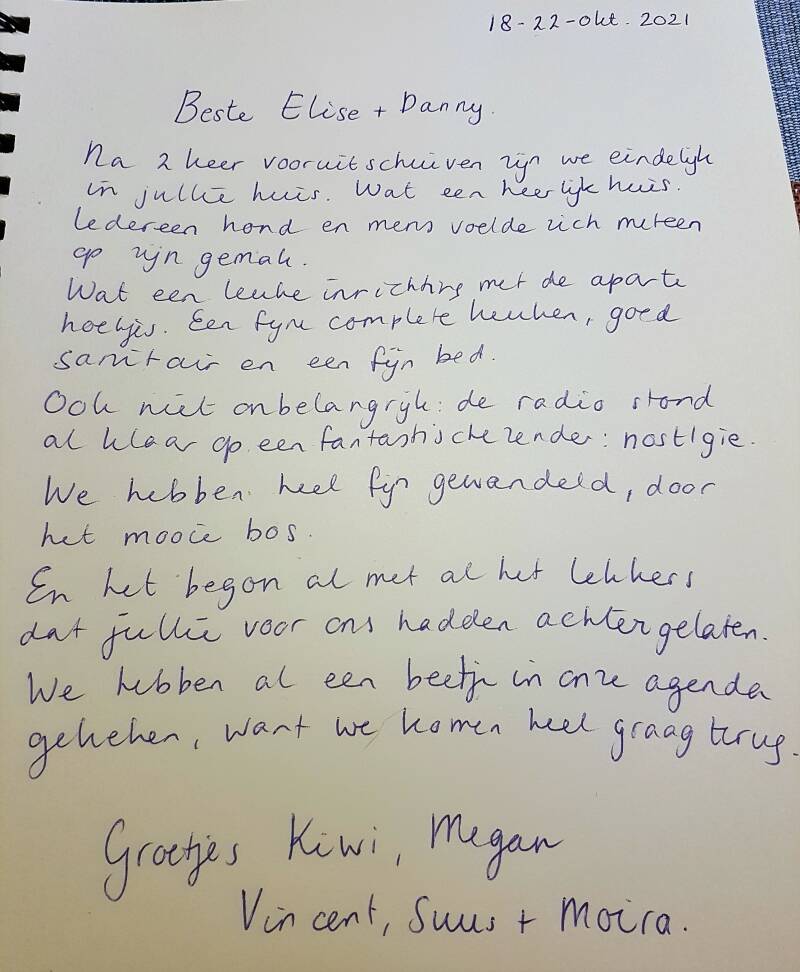 18-22-okt. 2021
Beste Elise + Danny.
Na 2 keer vooruitschuiven zijn we eindelijk
in jullie huis. Wat een heerlijk huis.
Iedereen hond en mens voelde zich meteen
op zijn gemak.
Wat een leuke inrichting met de aparte
hoekjes. Een fyne complete keuken, goed
sanitair en een fijn bed.
Ook niet onbelangrijk: de radio stond
al klaar op een fantastische zender: nostlgie.
We hebben heel fijn gewandeld, door
het mooie bos.
En het begon al met al het lekkers
dat jullie voor ons hadden achtergelaten.
We hebben al een beetje in onze agenda
gekeken, want we komen heel graag terug.
Groetjes Kiwi, Megan
Vincent, Suus + Moira.